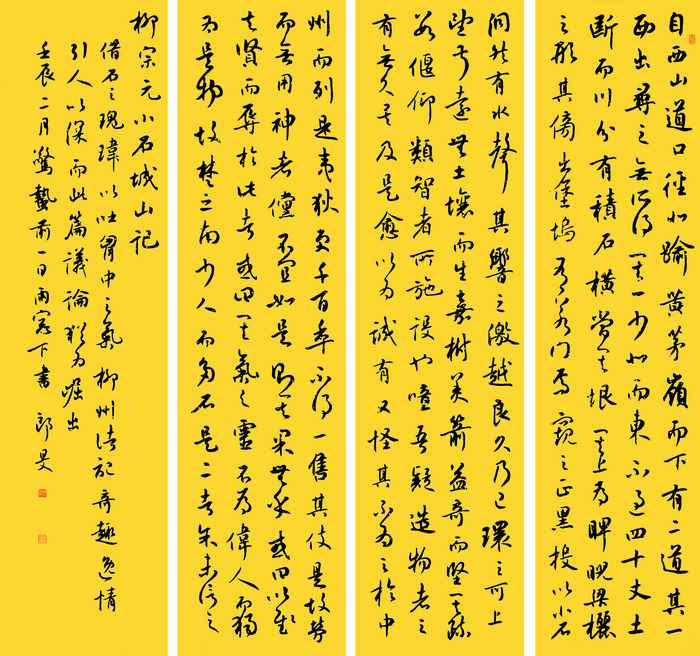 自西山道口徑北踰黄茅嶺而下有二道其一
西出尋之無所得其一少北而東不過四十丈土
斷而川分有積石橫當其垠其上為睥睨梁欐
之形其傍出堡塢有若門焉窺之正黑投以小石
洞然有水聲其響之激越良久乃已環之可上
望甚遠無土壤而生嘉樹美箭益奇而堅其疏
數偃仰類智者所施設也噫吾疑造物者之
有無久矣及是愈以為誠有又怪其不為之於中
州而列是夷狄更千百年不得一售其伎是故勞
而無用神者儻不宜如是則其果無乎或曰以慰
夫賢而辱於此者或曰其氣之靈不為偉人而獨
為是物故楚之南少人而多石是二者余未信之
柳宗元小石城山記
借石之瑰瑋以吐胸中之氣柳州諸記奇趣逸情
引人以深而此篇議論猶為崛出
壬辰二月驚蟄前一日雨窗下書 郎